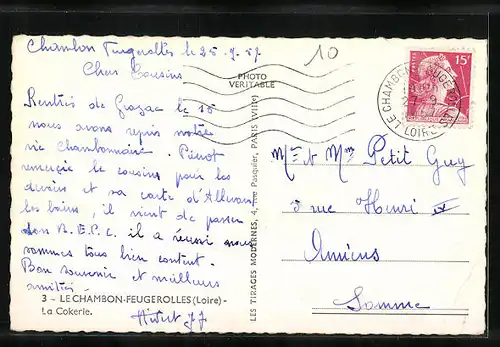 Chambon Feugerolles le 25.9.57
Chers Cousins
Rentrés de le 15
nous avons repris notre
vie chambonnaire. Pierrot
remercie le cousin pour les
et sa carte d'Allevard
les bains, il vient de passer
son B.E.P.C. il a réussi nous
sommes tous bien content.
Bon souvenir et meilleurs
amitiés.
Hivert J J
3 - LE CHAMBON-FEUGEROLLES (Loire) -
La Cokerie.
PHOTO
VERITABLE
LES TIRAGES MODERNES, 4, rue Pasquier, PARIS (VIIIe)
10
LE CHAMBON FEUGEROLLES
LOIRE
15F
Mr et Mme Petit Guy
3 rue Henri IV
Amiens
Somme